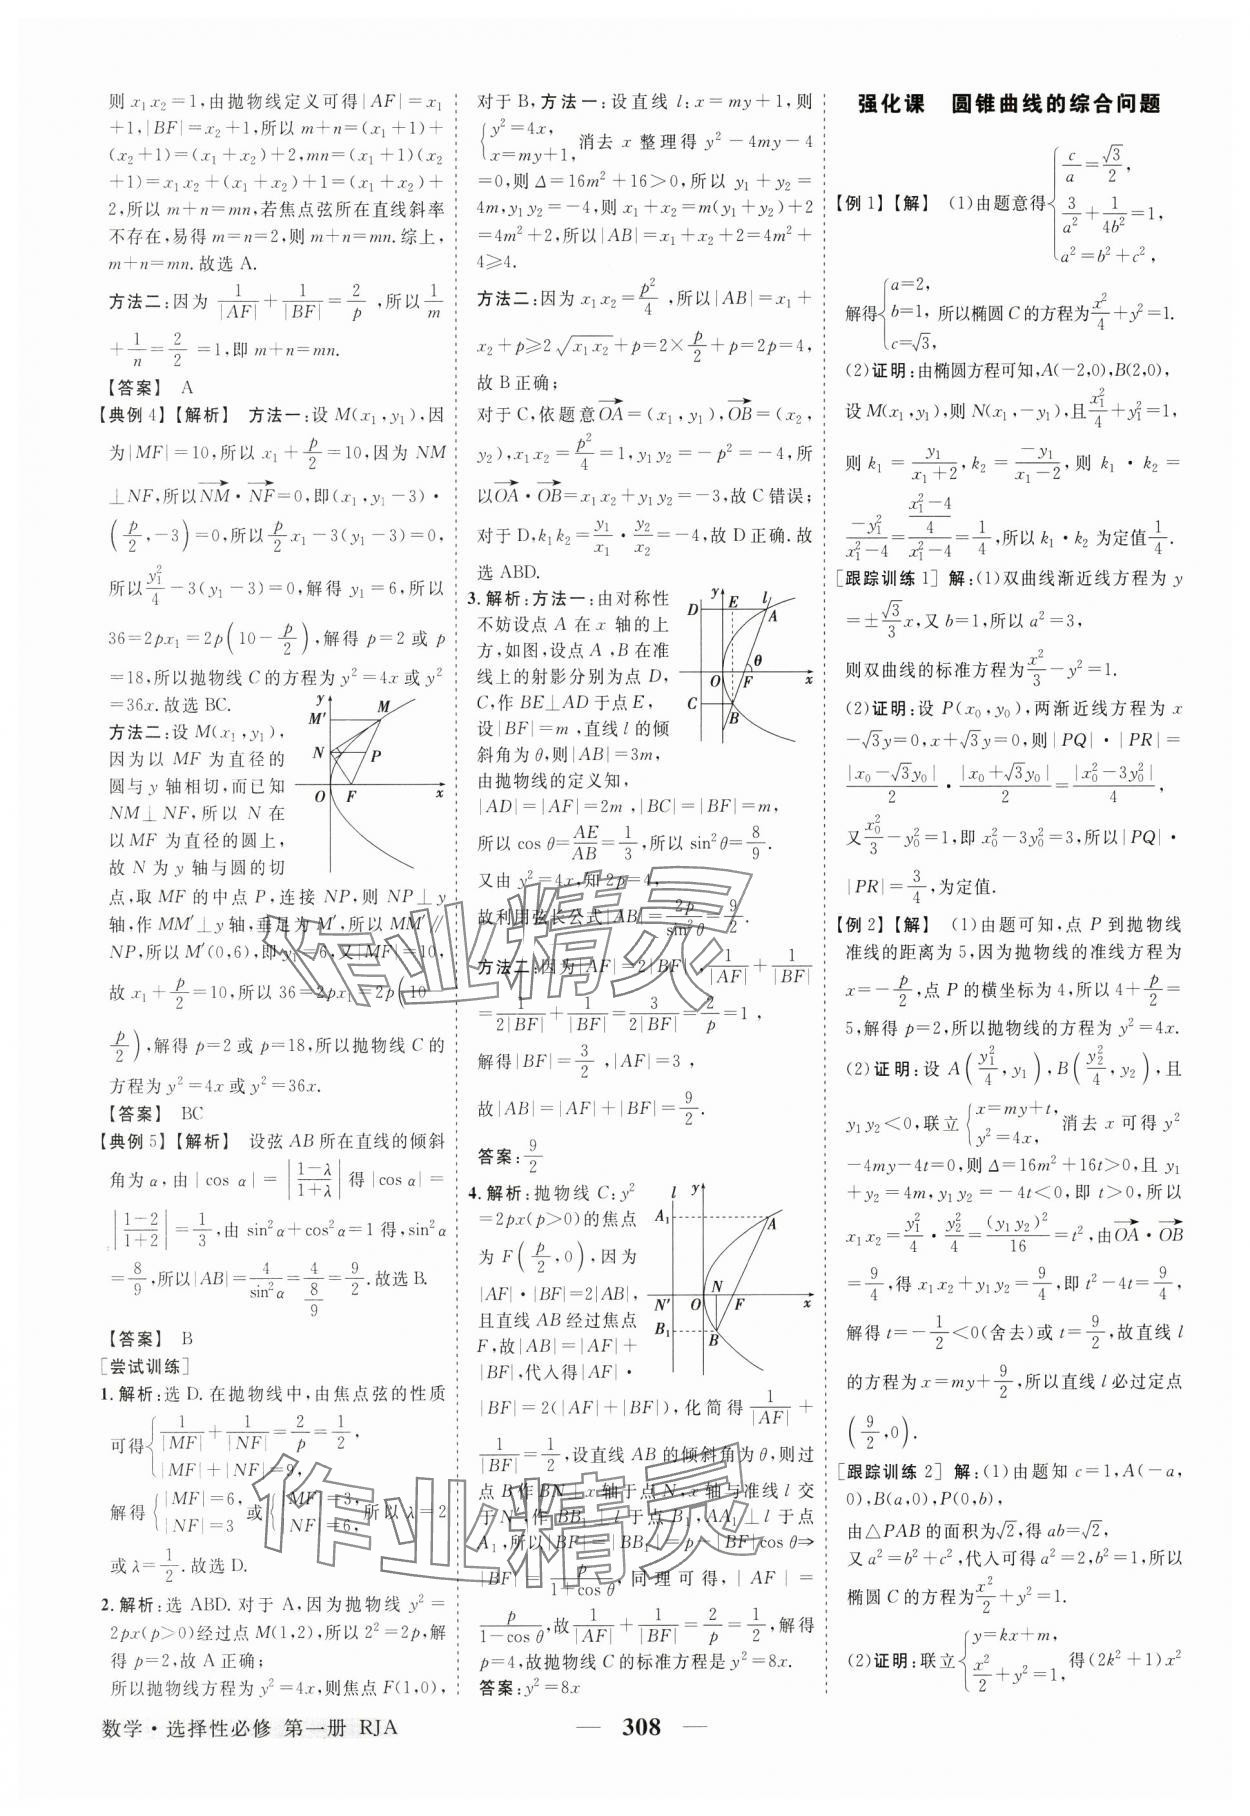 则 x₁x₂=1,由抛物线定义可得|AF|=x₁
+1,|BF|=x₂+1,所以 m+n=(x₁+1)+
(x₂+1)=(x₁+x₂)+2,mn=(x₁+1)(x₂
+1)=x₁x₂+(x₁+x₂)+1=(x₁+x₂)+
2,所以 m+n=mn,若焦点弦所在直线斜率
不存在,易得 m=n=2,则 m+n=mn.综上,
m+n=mn.故选 A.
方法二:因为 1/|AF|+1/|BF|=2/p,所以 1/m
+1/n=2/2=1,即 m+n=mn.
【答案】 A
【典例 4】【解析】 方法一:设 M(x₁,y₁),因
为|MF|=10,所以 x₁+p/2=10,因为 NM
⊥NF,所以NM→·NF→=0,即(x₁,y₁-3)·
(p/2,-3)=0,所以 p/2 x₁-3(y₁-3)=0,
所以 y₁²/4-3(y₁-3)=0,解得 y₁=6,所以
36=2px₁=2p(10-p/2),解得 p=2 或 p
=18,所以抛物线 C 的方程为 y²=4x 或 y²
=36x.故选 BC.
方法二:设 M(x₁,y₁),
因为以 MF 为直径的
圆与 y 轴相切,而已知
NM⊥NF,所以 N 在
以 MF 为直径的圆上,
故 N 为 y 轴与圆的切
点,取 MF 的中点 P,连接 NP,则 NP⊥y
轴,作 MM′⊥y 轴,垂足为 M′,所以 MM′∥
NP,所以 M′(0,6),即 y₁=6,又|MF|=10,
故 x₁+p/2=10,所以 36=2px₁=2p(10-
p/2),解得 p=2 或 p=18,所以抛物线 C 的
方程为 y²=4x 或 y²=36x.
【答案】 BC
【典例 5】【解析】 设弦 AB 所在直线的倾斜
角为 α,由|cos α|=|(1-λ)/(1+λ)| 得|cos α|=
|(1-2)/(1+2)|=1/3,由 sin²α+cos²α=1 得,sin²α
=8/9,所以|AB|=4/sin²α=4/(8/9)=9/2.故选 B.
【答案】 B
[尝试训练]
1.解析:选 D.在抛物线中,由焦点弦的性质
可得{1/|MF|+1/|NF|=2/p=1/2,
|MF|+|NF|=9,
解得{|MF|=6, |NF|=3 或{|MF|=3, |NF|=6, 所以 λ=2
或 λ=1/2.故选 D.
2.解析:选 ABD.对于 A,因为抛物线 y²=
2px(p>0)经过点 M(1,2),所以 2²=2p,解
得 p=2,故 A 正确;
所以抛物线方程为 y²=4x,则焦点 F(1,0),
对于 B,方法一:设直线 l:x=my+1,则
{y²=4x, x=my+1, 消去 x 整理得 y²-4my-4
=0,则 Δ=16m²+16>0,所以 y₁+y₂=
4m,y₁y₂=-4,则 x₁+x₂=m(y₁+y₂)+2
=4m²+2,所以|AB|=x₁+x₂+2=4m²+
4≥4.
方法二:因为 x₁x₂=p²/4,所以|AB|=x₁+
x₂+p≥2√(x₁x₂)+p=2×p/2+p=2p=4,
故 B 正确;
对于 C,依题意OA→=(x₁,y₁),OB→=(x₂,
y₂),x₁x₂=p²/4=1,y₁y₂=-p²=-4,所
以OA→·OB→=x₁x₂+y₁y₂=-3,故 C 错误;
对于 D,k₁k₂=y₁/x₁·y₂/x₂=-4,故 D 正确.故
选 ABD.
3.解析:方法一:由对称性
不妨设点 A 在 x 轴的上
方,如图,设点 A,B 在准
线上的射影分别为点 D,
C,作 BE⊥AD 于点 E,
设|BF|=m,直线 l 的倾
斜角为 θ,则|AB|=3m,
由抛物线的定义知,
|AD|=|AF|=2m,|BC|=|BF|=m,
所以 cos θ=AE/AB=1/3,所以 sin²θ=8/9.
又由 y²=4x,知 2p=4,
故利用弦长公式|AB|=2p/sin²θ=9/2.
方法二:因为|AF|=2|BF|,1/|AF|+1/|BF|
=1/2|BF|+1/|BF|=3/2|BF|=2/p=1,
解得|BF|=3/2,|AF|=3,
故|AB|=|AF|+|BF|=9/2.
答案:9/2
4.解析:抛物线 C:y²
=2px(p>0)的焦点
为 F(p/2,0),因为
|AF|·|BF|=2|AB|,
且直线 AB 经过焦点
F,故|AB|=|AF|+
|BF|,代入得|AF|·
|BF|=2(|AF|+|BF|),化简得 1/|AF|+
1/|BF|=1/2,设直线 AB 的倾斜角为 θ,则过
点 B 作 BN⊥x 轴于点 N,x 轴与准线 l 交
于 N′,作 BB₁⊥l 于点 B₁,AA₁⊥l 于点
A₁,所以|BF|=|BB₁|=p-|BF|cos θ⇒
|BF|=p/(1+cos θ),同理可得,|AF|=
p/(1-cos θ),故 1/|AF|+1/|BF|=2/p=1/2,解得
p=4,故抛物线 C 的标准方程是 y²=8x.
答案:y²=8x
强化课 圆锥曲线的综合问题
【例 1】【解】 (1)由题意得{c/a=√3/2,
3/a²+1/4b²=1,
a²=b²+c²,
解得{a=2, b=1, c=√3, 所以椭圆 C 的方程为 x²/4+y²=1.
(2)证明:由椭圆方程可知,A(-2,0),B(2,0),
设 M(x₁,y₁),则 N(x₁,-y₁),且 x₁²/4+y₁²=1,
则 k₁=y₁/(x₁+2),k₂=-y₁/(x₁-2),则 k₁·k₂=
-y₁²/(x₁²-4)=((x₁²-4)/4)/(x₁²-4)=1/4,所以 k₁·k₂ 为定值 1/4.
[跟踪训练 1] 解:(1)双曲线渐近线方程为 y
=±√3/3 x,又 b=1,所以 a²=3,
则双曲线的标准方程为 x²/3-y²=1.
(2)证明:设 P(x₀,y₀),两渐近线方程为 x
-√3y=0,x+√3y=0,则|PQ|·|PR|=
|x₀-√3y₀|/2·|x₀+√3y₀|/2=|x₀²-3y₀²|/4,
又 x₀²/3-y₀²=1,即 x₀²-3y₀²=3,所以|PQ|·
|PR|=3/4,为定值.
【例 2】【解】 (1)由题可知,点 P 到抛物线
准线的距离为 5,因为抛物线的准线方程为
x=-p/2,点 P 的横坐标为 4,所以 4+p/2=
5,解得 p=2,所以抛物线的方程为 y²=4x.
(2)证明:设 A(y₁²/4,y₁),B(y₂²/4,y₂),且
y₁y₂<0,联立{x=my+t, y²=4x, 消去 x 可得 y²
-4my-4t=0,则 Δ=16m²+16t>0,且 y₁
+y₂=4m,y₁y₂=-4t<0,即 t>0,所以
x₁x₂=y₁²/4·y₂²/4=(y₁y₂)²/16=t²,由OA→·OB→
=9/4,得 x₁x₂+y₁y₂=9/4,即 t²-4t=9/4,
解得 t=-1/2<0(舍去)或 t=9/2,故直线 l
的方程为 x=my+9/2,所以直线 l 必过定点
(9/2,0).
[跟踪训练 2] 解:(1)由题知 c=1,A(-a,
0),B(a,0),P(0,b),
由△PAB 的面积为√2,得 ab=√2,
又 a²=b²+c²,代入可得 a=√2,b=1,所以
椭圆 C 的方程为 x²/2+y²=1.
(2)证明:联立{y=kx+m, x²/2+y²=1, 得(2k²+1)x²
数学·选择性必修 第一册 RJA
— 308 —
作业精灵
作业精灵